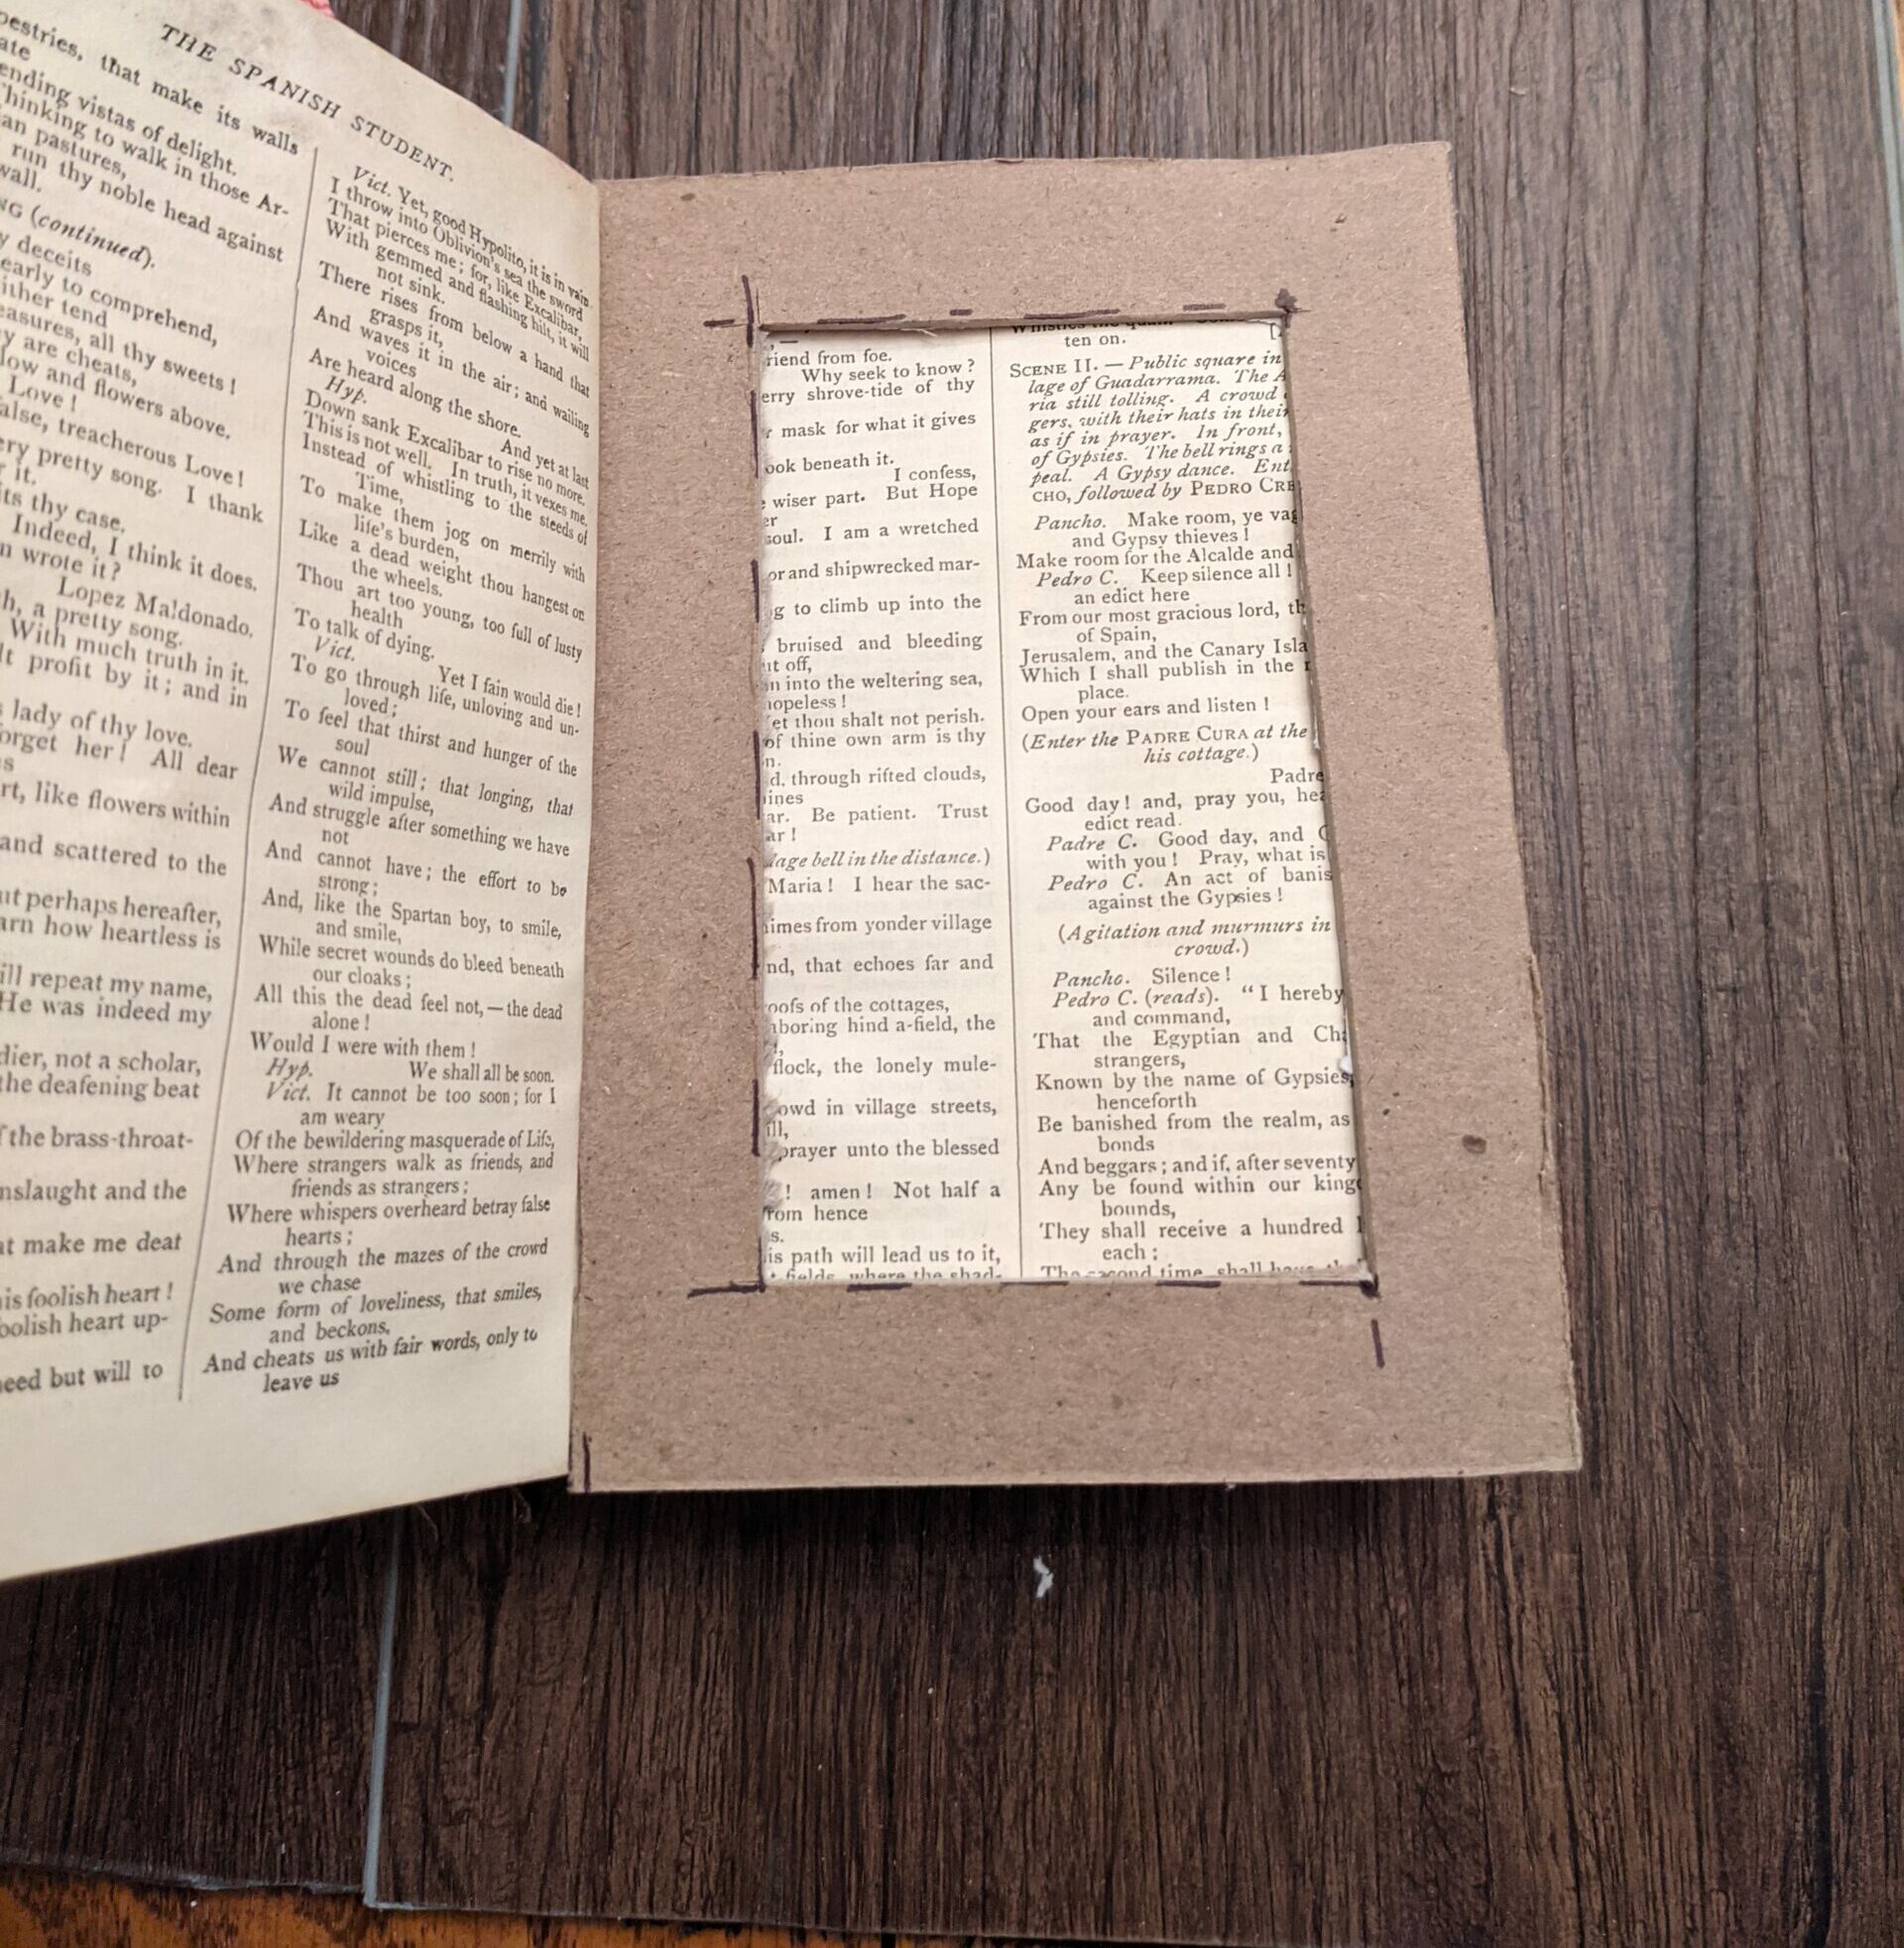 THE SPANISH STUDENT.
that make its walls
ending vistas of delight.
Thinking to walk in those Ar-
an pastures,
run thy noble head against
wall.
(continued).
deceits
early to comprehend,
ither tend
easures, all thy sweets!
y are cheats,
low and flowers above.
Love!
alse, treacherous Love!
ery pretty song. I thank
it.
its thy case.
Indeed, I think it does.
n wrote it?
Lopez Maldonado.
h, a pretty song.
With much truth in it.
lt profit by it; and in
lady of thy love.
orget her! All dear
s
rt, like flowers within
and scattered to the
ut perhaps hereafter,
arn how heartless is
ill repeat my name,
He was indeed my
dier, not a scholar,
the deafening beat
f the brass-throat-
nslaught and the
at make me deaf
is foolish heart!
oolish heart up-
eed but will to
Vict. Yet, good Hypolito, it is in vain
I throw into Oblivion's sea the sword
That pierces me; for, like Excalibar,
With gemmed and flashing hilt, it will
not sink.
There rises from below a hand that
grasps it,
And waves it in the air; and wailing
voices
Are heard along the shore.
Hyp. And yet at last
Down sank Excalibar to rise no more.
This is not well. In truth, it vexes me.
Instead of whistling to the steeds of
Time,
To make them jog on merrily with
life's burden,
Like a dead weight thou hangest on
the wheels.
Thou art too young, too full of lusty
health
To talk of dying.
Vict. Yet I fain would die!
To go through life, unloving and un-
loved;
To feel that thirst and hunger of the
soul
We cannot still; that longing, that
wild impulse,
And struggle after something we have
not
And cannot have; the effort to be
strong;
And, like the Spartan boy, to smile,
and smile,
While secret wounds do bleed beneath
our cloaks;
All this the dead feel not,—the dead
alone!
Would I were with them!
Hyp. We shall all be soon.
Vict. It cannot be too soon; for I
am weary
Of the bewildering masquerade of Life,
Where strangers walk as friends, and
friends as strangers;
Where whispers overheard betray false
hearts;
And through the mazes of the crowd
we chase
Some form of loveliness, that smiles,
and beckons,
And cheats us with fair words, only to
leave us
riend from foe.
Why seek to know?
erry shrove-tide of thy
mask for what it gives
ook beneath it.
I confess,
wiser part. But Hope
er
soul. I am a wretched
or and shipwrecked mar-
g to climb up into the
bruised and bleeding
ut off,
n into the weltering sea,
hopeless!
et thou shalt not perish.
of thine own arm is thy
n.
d, through rifted clouds,
ines
ar. Be patient. Trust
ar!
lage bell in the distance.)
Maria! I hear the sac-
imes from yonder village
nd, that echoes far and
oofs of the cottages,
aboring hind a-field, the
flock, the lonely mule-
owd in village streets,
ill,
prayer unto the blessed
! amen! Not half a
rom hence
s.
is path will lead us to it,
fields, where the shad-
ten on.
SCENE II. — Public square in
lage of Guadarrama. The A
ria still tolling. A crowd
gers, with their hats in their
as if in prayer. In front,
of Gypsies. The bell rings a
peal. A Gypsy dance. Ent
CHO, followed by PEDRO CRE
Pancho. Make room, ye vag
and Gypsy thieves!
Make room for the Alcalde and
Pedro C. Keep silence all!
an edict here
From our most gracious lord, th
of Spain,
Jerusalem, and the Canary Isla
Which I shall publish in the
place.
Open your ears and listen!
(Enter the PADRE CURA at the
his cottage.)
Padre
Good day! and, pray you, hea
edict read.
Padre C. Good day, and
with you! Pray, what is
Pedro C. An act of banis
against the Gypsies!
(Agitation and murmurs in
crowd.)
Pancho. Silence!
Pedro C. (reads). "I hereby
and command,
That the Egyptian and Cha
strangers,
Known by the name of Gypsies,
henceforth
Be banished from the realm, as
bonds
And beggars; and if, after seventy
Any be found within our king
bounds,
They shall receive a hundred l
each;
The second time, shall have